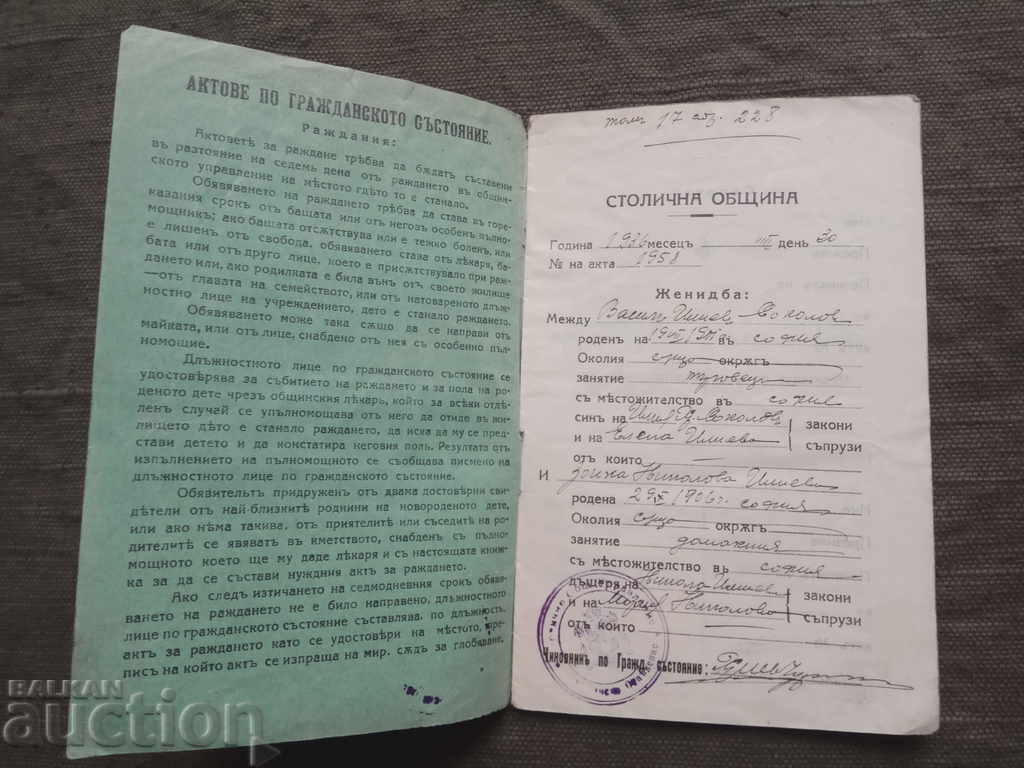 АКТОВЕ ПО ГРАЖДАНСКОТО СЪСТОЯНИЕ.
Раждания:
Актоветѣ за раждане трѣбва да бѫдатъ съставени
въ разтояние на седемь дена отъ раждането въ общин-
ското управление на мѣстото гдѣто то е станало.
Обявяването на раждането трѣбва да става въ горе-
казания срокъ отъ бащата или отъ неговъ особенъ пълно-
мощникъ; ако бащата отсѫтствува или е тежко боленъ, или
е лишенъ отъ свобода, обявяването става отъ лѣкаря, ба-
бата или отъ друго лице, което е присѫтствувало при раж-
дането или, ако родилката е била вънъ отъ своето жилище
—отъ главата на семейството, или отъ натовареното длъж-
ностно лице на учреждението, дето е станало раждането.
Обявяването може така сѫщо да се направи отъ
майката, или отъ лице, снабдено отъ нея съ особенно пъл-
номощие.
Длъжностното лице по гражданското състояние се
удостовѣрява за събитието на раждането и за пола на ро-
деното дете чрезъ общинския лѣкарь, който за всѣки отдѣ-
ленъ случай се упълномощава отъ него да отиде въ жи-
лището дѣто е станало раждането, да иска да му се пред-
стави детето и да констатира неговия полъ. Резултата отъ
изпълнението на пълномощното се съобщава писмено на
длъжностното лице по гражданското състояние.
Обявительтъ придруженъ отъ двама достовѣрни сви-
дѣтели отъ най-близкитѣ роднини на новороденото дете,
или ако нѣма такива, отъ приятелитѣ или съседитѣ на ро-
дителитѣ се явяватъ въ кметството, снабденъ съ пълно-
мощното което ще му даде лѣкаря и съ настоящата книж-
ка за да се състави нуждния актъ за раждането.
Ако следъ изтичането на седмодневния срокъ обявя-
ването на раждането не е било направено, длъжностното
лице по гражданското състояние съставлява, по длъжность,
актъ за раждането като се удостовѣри на мѣстото, а пре-
писъ на който актъ се изпраща на мир. сѫдъ за глобяване.
томъ 17 стр. 228
СТОЛИЧНА ОБЩИНА
Година 1936 месецъ VIII день 30
№ на акта 1958
Женидба:
Между Василъ Илиев Соколов
роденъ на въ София
Околия окрѫгъ
занятие търговецъ
съ мѣстожителство въ София
синъ на законни
и на Елена Илиева съпрузи
отъ които
И Николова Илиева
родена 1906 г. София
Околия окрѫгъ
занятие домакиня
съ мѣстожителство въ София
дъщеря на Никола Илиев закони
и на Николова съпрузи
отъ които
Чиновникъ по Гражд. състояние:
BALKAN
auction